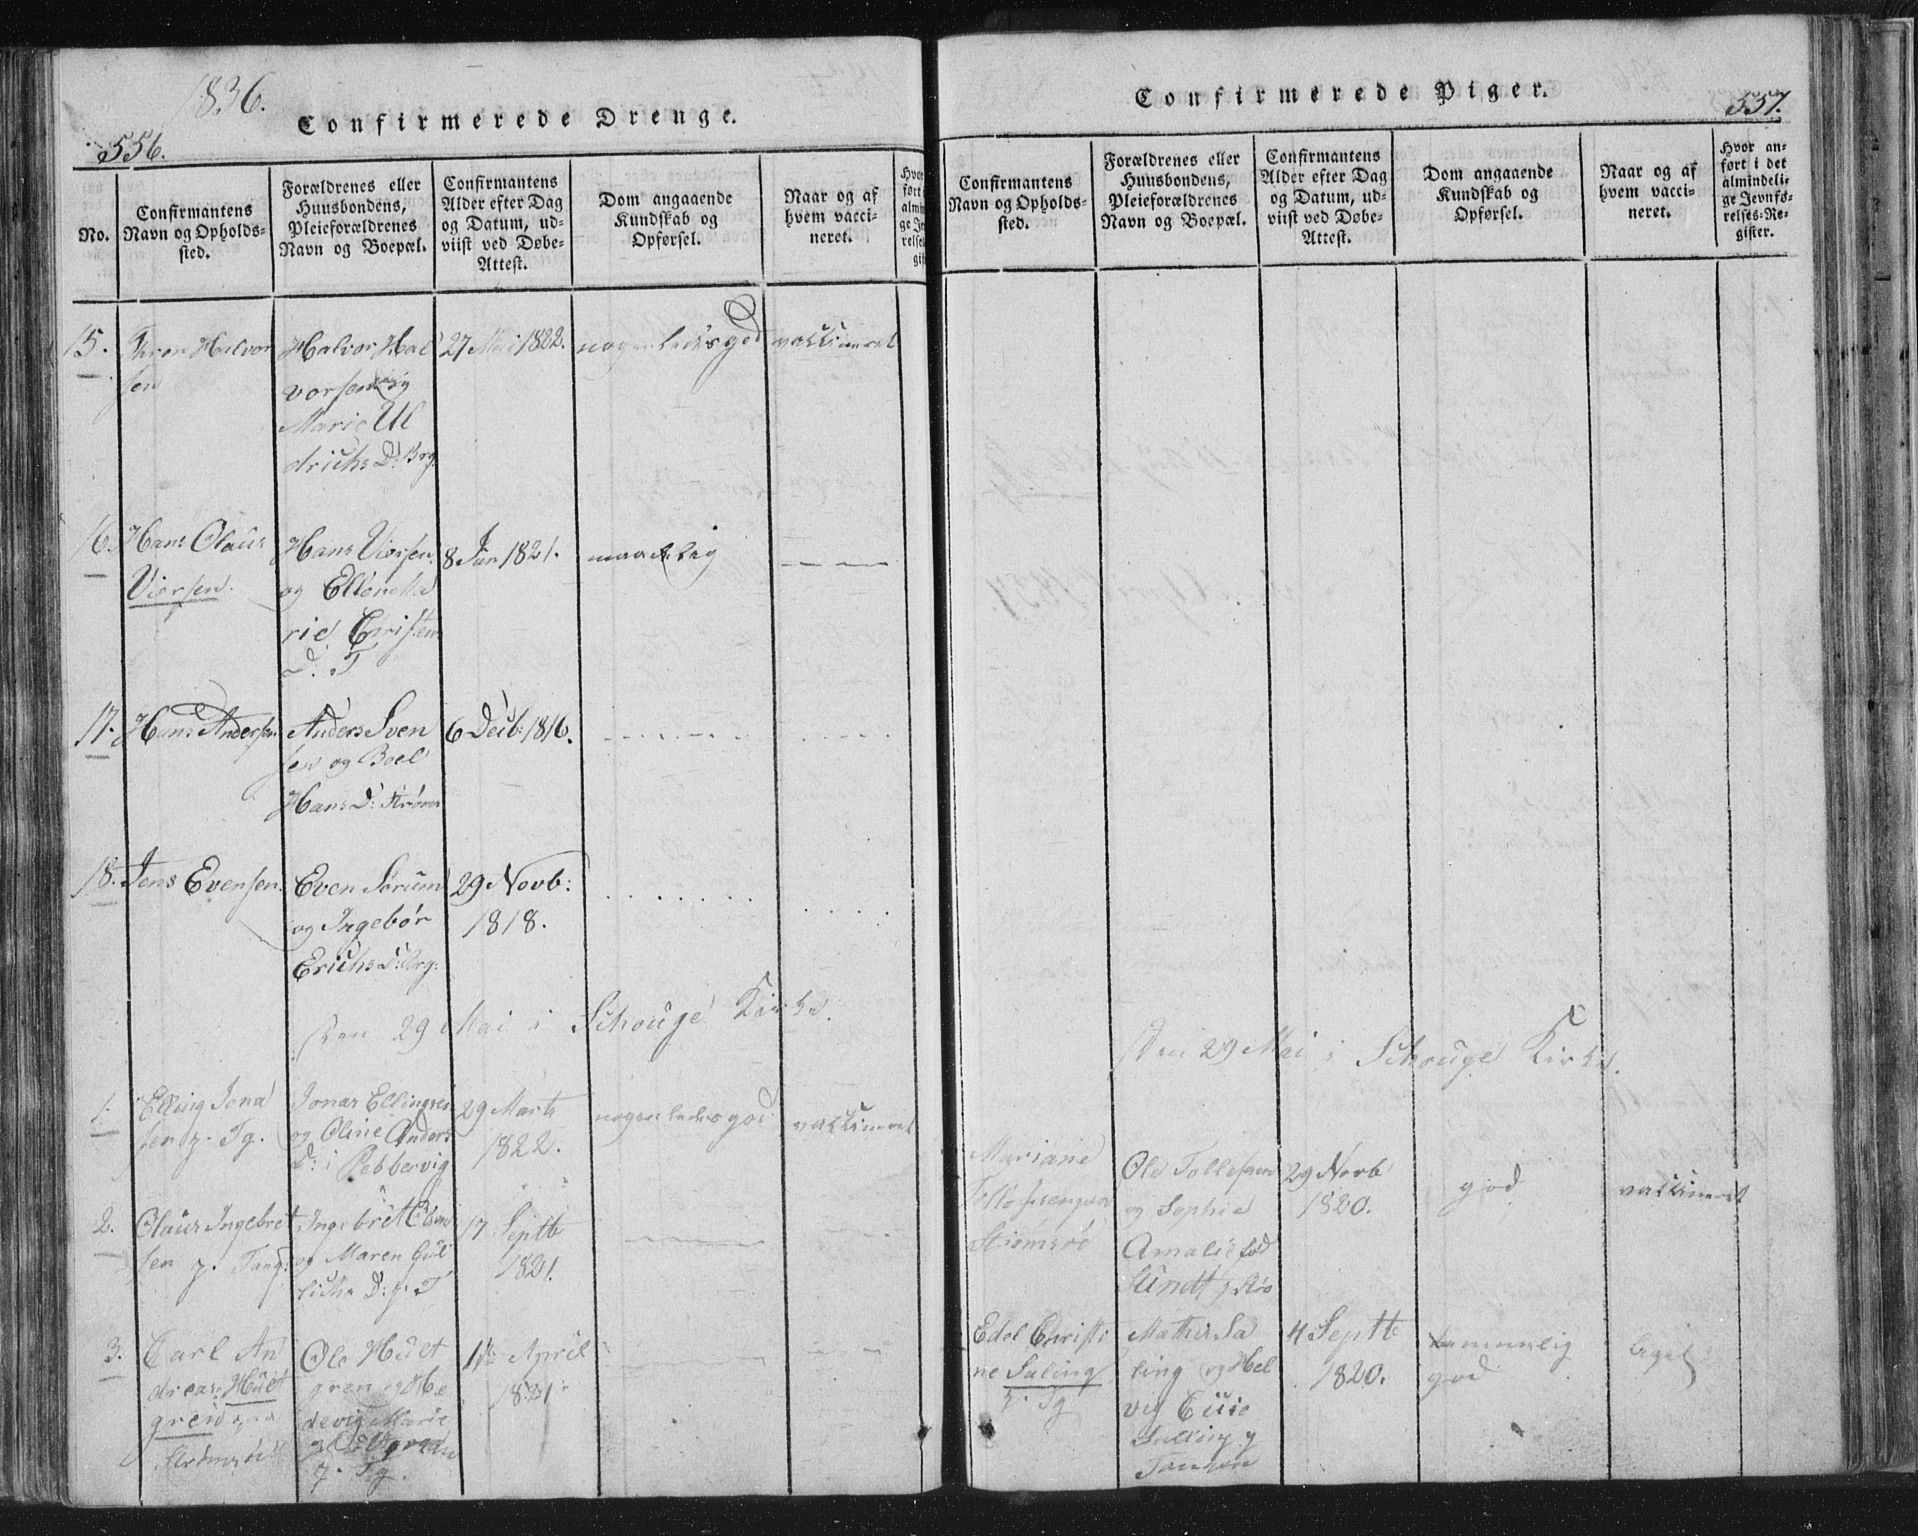 1836.
Confirmerede Drenge.
556.
No.
Confirmantens
Navn og Opholds-
sted.
Forældrenes eller
Huusbondens,
Pleieforældrenes
Navn og Boepæl.
Confirmantens
Alder efter Dag
og Datum, ud-
viist ved Døbe-
Attest.
Dom angaaende
Kundskab og
Opførsel.
Naar og af
hvem vacci-
neret.
15.
Halvor
sen
Halvor Hal
vorsen og
Marie Ul
drichs D: Brg.
27 Mai 1822.
nogenledes god
vaccineret
16.
Hans Olaus
Viersen.
Hans Viersen
og Ellen Ma
rie Christens
D: T
8 Jan 1821.
maadelig
17.
Hans Andersen
Anders Sven
sen og Boel
Hans D: Strøms
6 Decb: 1816.
18.
Jens Evensen.
Even Sørum
og Ingebor
Erichs D: Brg:
29 Novb:
1818.
Den 29 Mai i Schouge Kirke.
1.
Elling Jona
sen p. Tg.
Jonas Ellingsen
og Oline Anders
D: i Pebbervig
29 Marts
1822.
nogenledes god
vaccineret
2.
Olaus Ingebret
sen p. Tang:
Ingebret Olsen
og Maren Gul
lichs D: p. T
17 Septb
1821.
3.
Carl An
dreas Huet
gren
Strømsöe
Ole Huet
gren og He
devig Marie
p. Tg.
April
1821
Confirmerede Piger.
557.
Confirmantens
Navn og Opholds-
sted.
Forældrenes eller
Huusbondens,
Pleieforældrenes
Navn og Boepæl.
Confirmantens
Alder efter Dag
og Datum, ud-
viist ved Døbe-
Attest.
Dom angaaende
Kundskab og
Opførsel.
Naar og af
hvem vacci-
neret.
Hvor an-
ført i det
almindeli-
ge Jevnfø-
relses-Re-
gister.
Den 29 Mai i Schouge Kirke.
Mariane
Strømsöe
Ole Tollefsen
og Sophie
Amalie fød
Lundt p. Strø
29 Novb
1820.
god
vaccineret
Edel Christi
ne Saling
p. Tg
Mathis Sa
ling og Hel
vig
4 Septb
1820.
temmelig
god
ligel